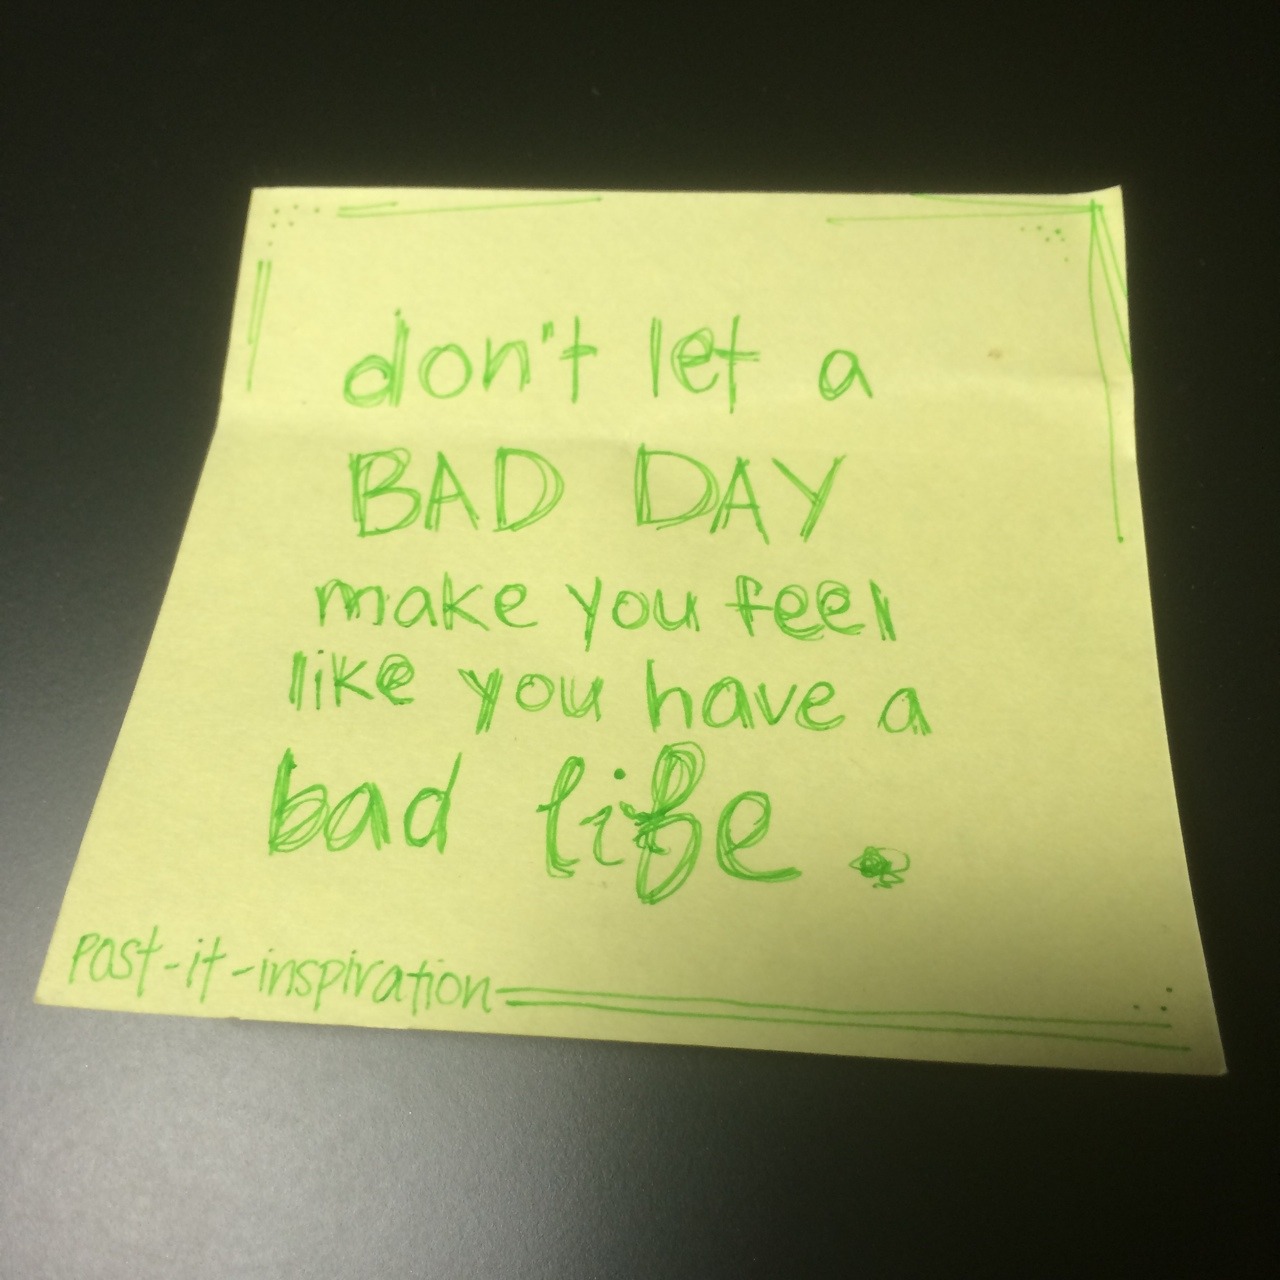 don't let a
BAD DAY
make you feel
like you have a
bad life.
Post-it-inspiration